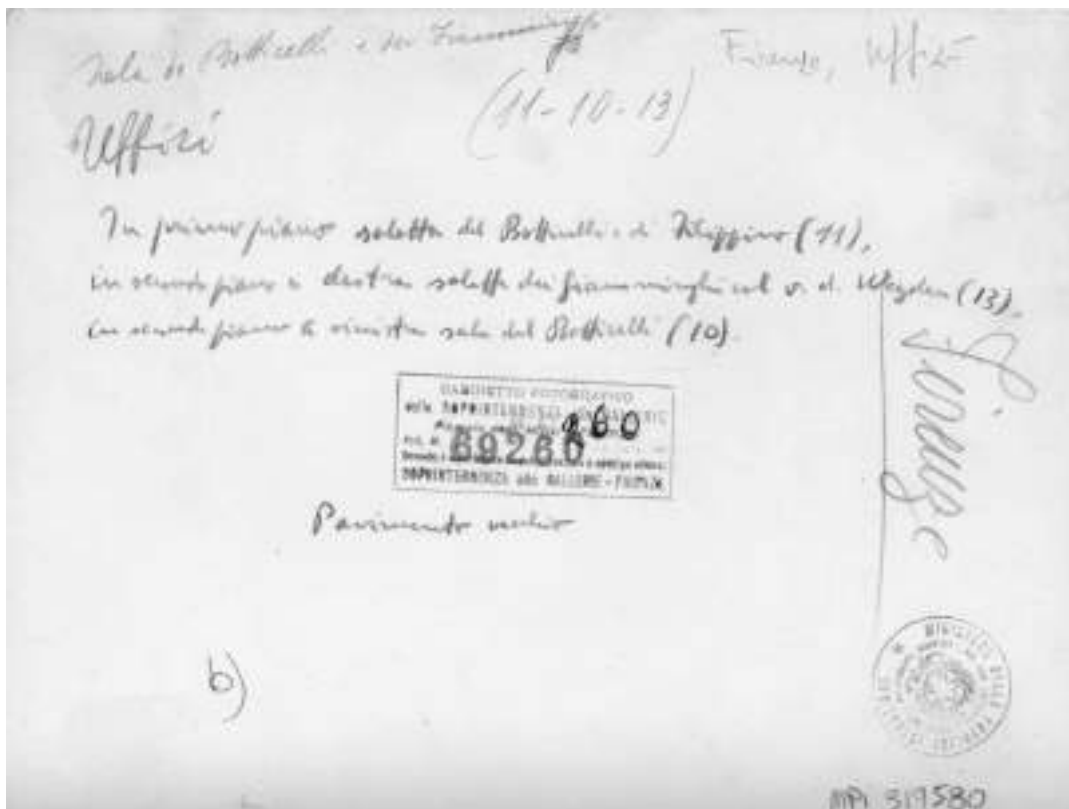 Sala di Botticelli e dei Fiamminghi
Firenze, Uffizi
(11-10-13)
Uffizi
In primo piano saletta del Botticelli e di Filippino (11),
in secondo piano a destra saletta dei fiamminghi col v. d. Weyden (13),
in secondo piano a sinistra sala del Botticelli (10).
Firenze
GABINETTO FOTOGRAFICO
della SOPRINTENDENZA
260
69260
SOPRINTENDENZA alle GALLERIE - FIRENZE
Pavimento vecchio
b)
MINISTERO DELLA PUBBLICA ISTRUZIONE
MPI 319580